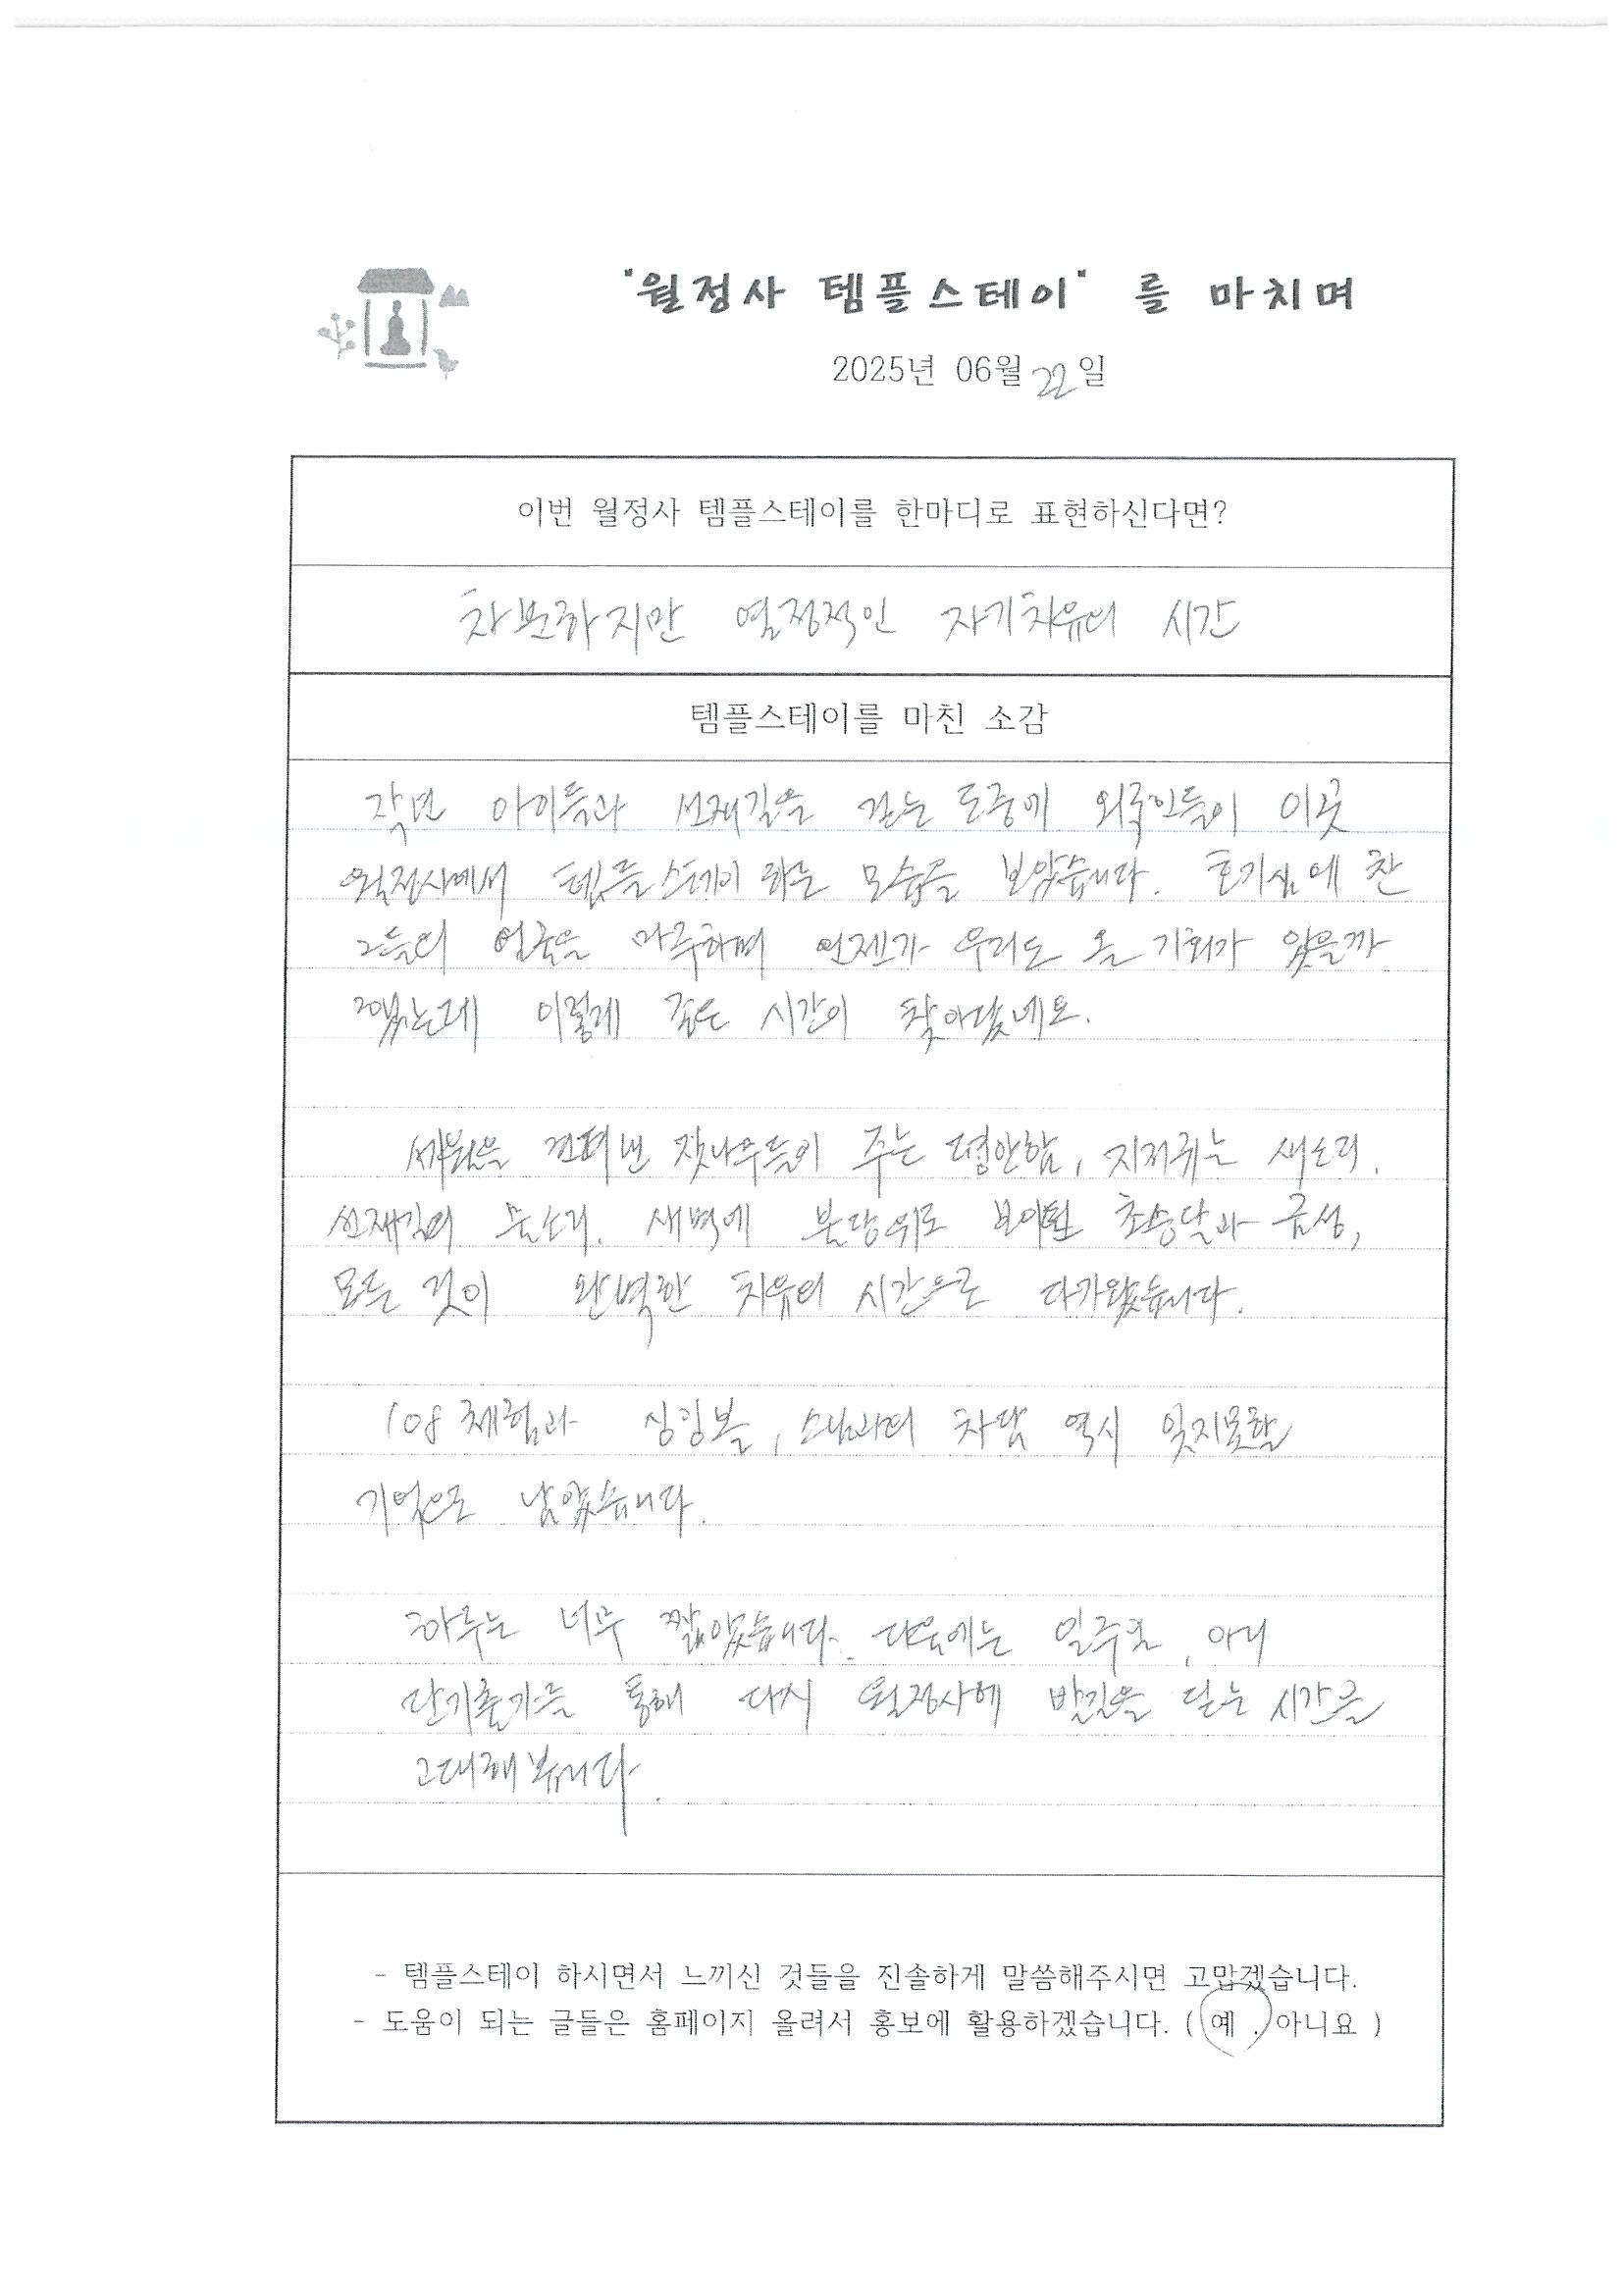 "월정사 템플스테이" 를 마치며
2025년 06월 22일
이번 월정사 템플스테이를 한마디로 표현하신다면?
차분하지만 열정적인 자기치유의 시간
템플스테이를 마친 소감
작년 아이들과 선재길을 걷는 도중에 외국인들이 이곳
월정사에서 템플스테이 하는 모습을 보았습니다. 호기심에 찬
그들의 얼굴을 마주하며 언젠가 우리도 올 기회가 있을까
했는데 이렇게 좋은 시간이 찾아왔네요.
세월을 견뎌낸 잣나무들이 주는 평안함, 지저귀는 새소리,
선재길의 물소리. 새벽에 본당위로 보이던 초승달과 금성,
모든 것이 완벽한 치유의 시간으로 다가왔습니다.
108 체험과 싱잉볼, 스님과의 차담 역시 잊지못할
기억으로 남았습니다.
하루는 너무 짧았습니다. 다음에는 일주일, 아니
단기출가를 통해 다시 월정사에 발길을 딛는 시간을
고대해봅니다.
- 템플스테이 하시면서 느끼신 것들을 진솔하게 말씀해주시면 고맙겠습니다.
- 도움이 되는 글들은 홈페이지 올려서 홍보에 활용하겠습니다. ( 예 . 아니요 )